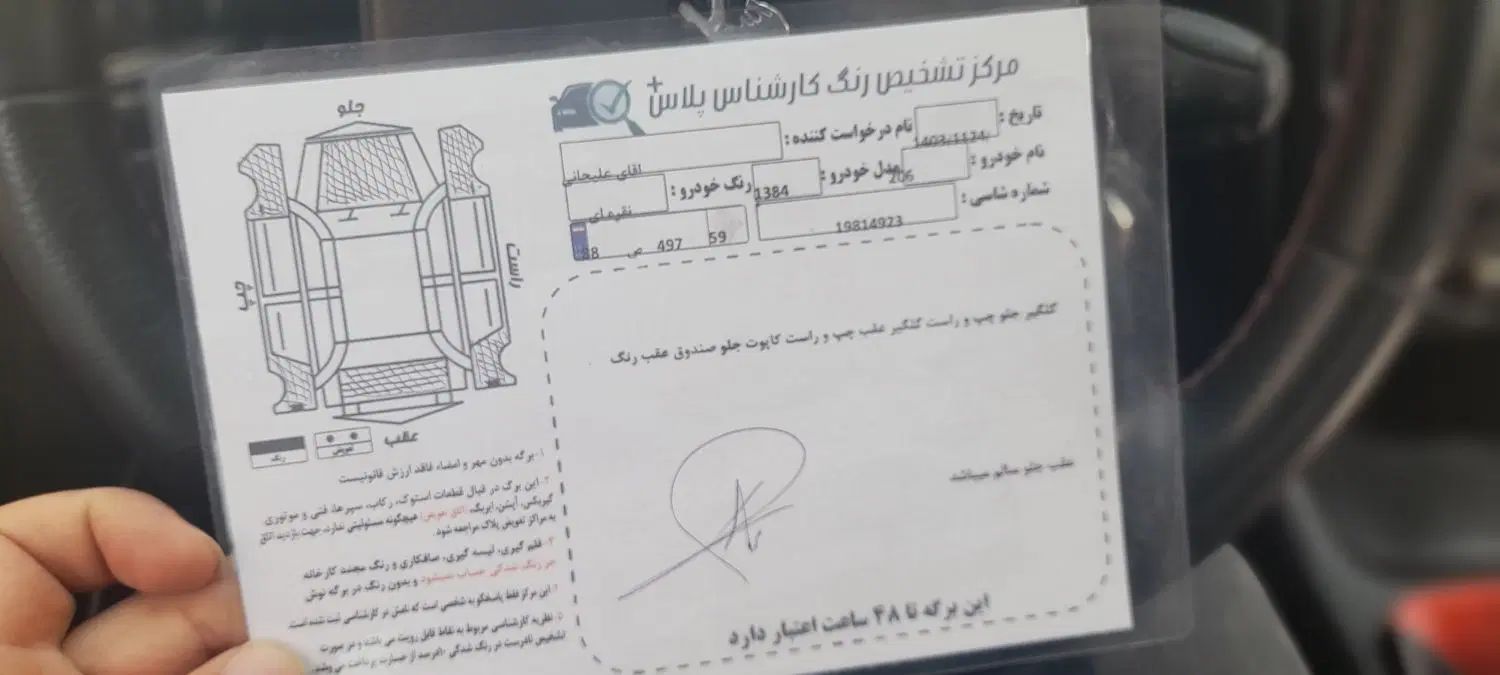 مرکز تشخیص رنگ کارشناس پلاس+
تاریخ : 1403/1124 نام درخواست کننده : اقای علیجانی
نام خودرو : 206 مدل خودرو : 1384 رنگ خودرو : نقره ای
شماره شاسی : 19814923
59 497 ص 88
گلگیر جلو چپ و راست گلگیر عقب چپ و راست کاپوت جلو صندوق عقب رنگ
عقب جلو سالم میباشد
این برگه تا ۴۸ ساعت اعتبار دارد
جلو
راست
چپ
عقب
تعویض
رنگ
۱- برگه بدون مهر و امضاء فاقد ارزش قانونیست
۲- این برگ در قبال قطعات استوک، رکاب، سپرها، فنی و موتوری
گیربکس، آپشن، ایربگ، (اتاق تعویض) هیچگونه مسئولیتی ندارد، جهت بازدید اتاق
به مراکز تعویض پلاک مراجعه شود.
۳- قلم گیری، لیسه گیری، صافکاری و رنگ مجدد کارخانه
جز رنگ شدگی حساب نمیشود و بدون رنگ در برگه نوش
این مرکز فقط پاسخگو به شخصی است که نامش در کارشناسی ثبت شده است.
۵- نظریه کارشناسی مربوط به نقاط قابل رویت می باشد و در صورت
تشخیص نادرست در رنگ شدگی